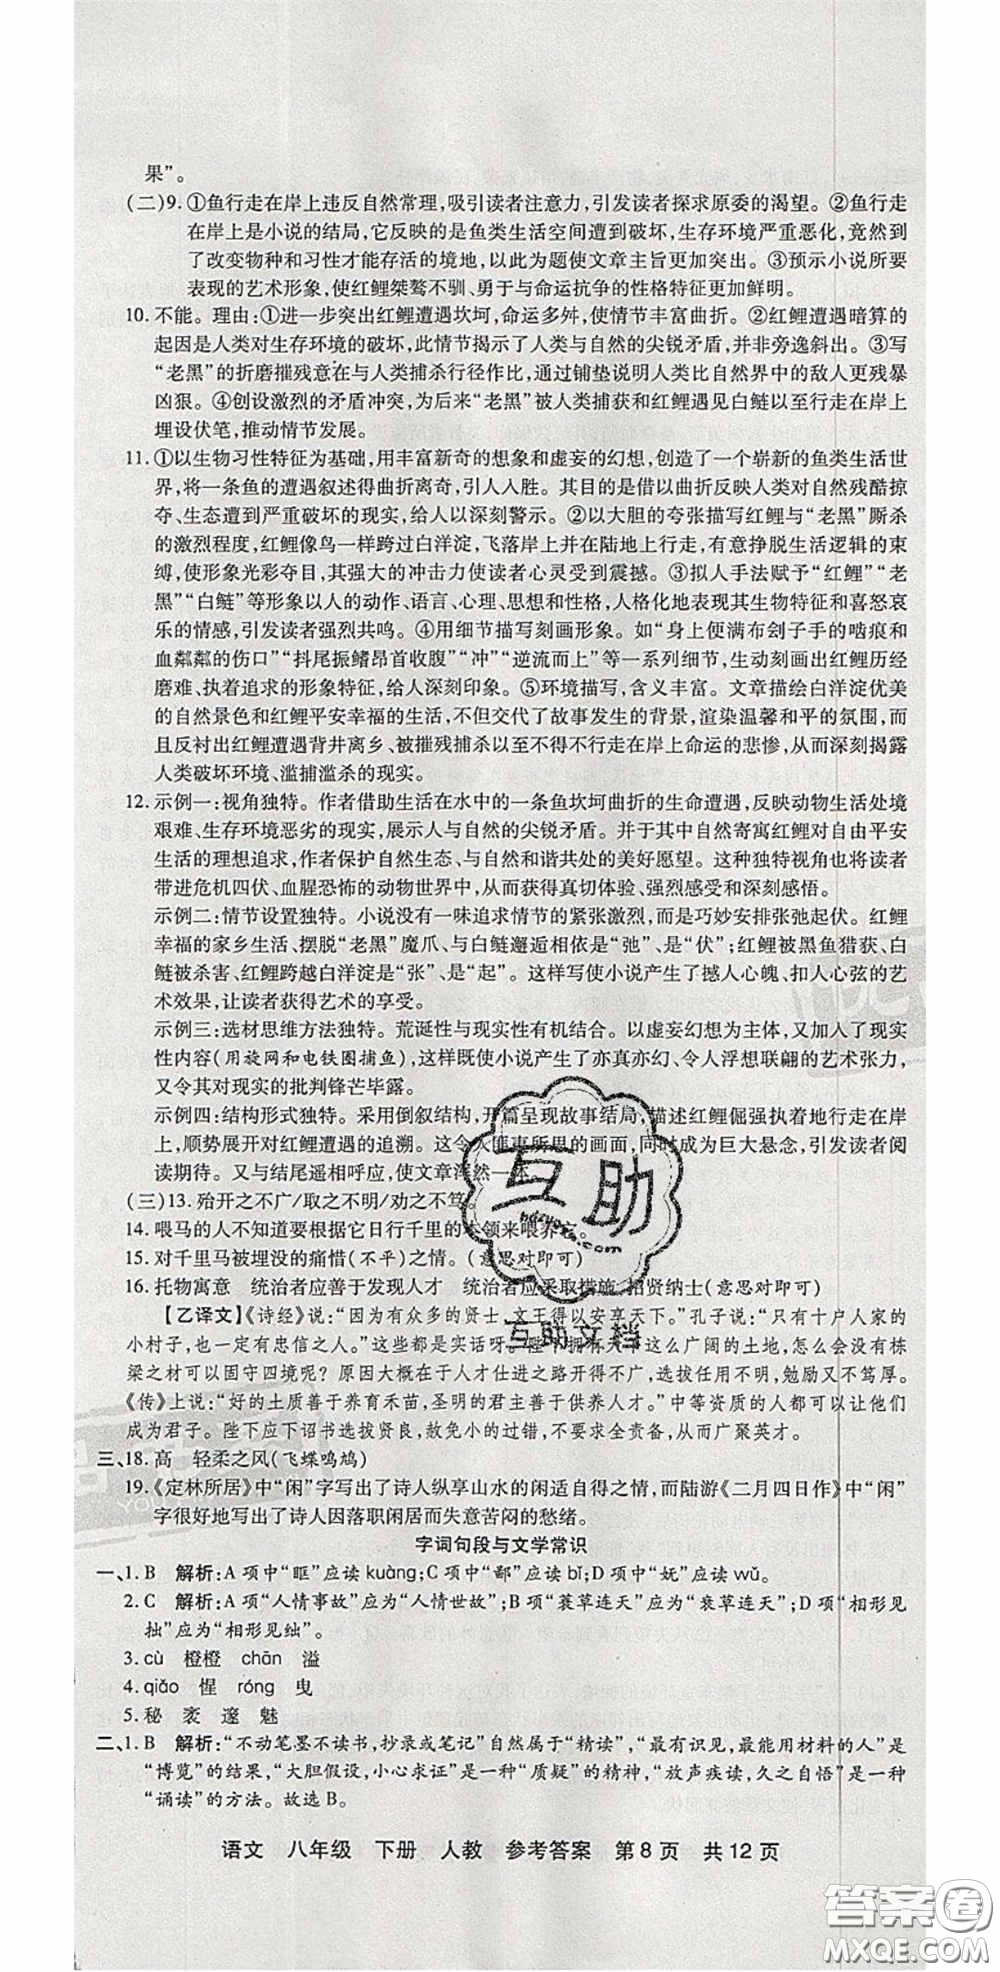 果”。
(二)9.①鱼行走在岸上违反自然常理,吸引读者注意力,引发读者探求原委的渴望。②鱼行走
在岸上是小说的结局,它反映的是鱼类生活空间遭到破坏,生存环境严重恶化,竟然到
了改变物种和习性才能存活的境地,以此为题使文章主旨更加突出。③预示小说所要
表现的艺术形象,使红鲤桀骜不驯、勇于与命运抗争的性格特征更加鲜明。
10.不能。理由:①进一步突出红鲤遭遇坎坷,命运多舛,使情节丰富曲折。②红鲤遭遇暗算的
起因是人类对生存环境的破坏,此情节揭示了人类与自然的尖锐矛盾,并非旁逸斜出。③写
“老黑”的折磨摧残意在与人类捕杀行径作比,通过铺垫说明人类比自然界中的敌人更残暴
凶狠。④创设激烈的矛盾冲突,为后来“老黑”被人类捕获和红鲤遇见白鲢以至行走在岸上
埋设伏笔,推动情节发展。
11.①以生物习性特征为基础,用丰富新奇的想象和虚妄的幻想,创造了一个崭新的鱼类生活世
界,将一条鱼的遭遇叙述得曲折离奇,引人入胜。其目的是借以曲折反映人类对自然残酷掠
夺、生态遭到严重破坏的现实,给人以深刻警示。②以大胆的夸张描写红鲤与“老黑”厮杀
的激烈程度,红鲤像鸟一样跨过白洋淀,飞落岸上并在陆地上行走,有意挣脱生活逻辑的束
缚,使形象光彩夺目,其强大的冲击力使读者心灵受到震撼。③拟人手法赋予“红鲤”“老
黑”“白鲢”等形象以人的动作、语言、心理、思想和性格,人格化地表现其生物特征和喜怒哀
乐的情感,引发读者强烈共鸣。④用细节描写刻画形象。如“身上便满布刽子手的啮痕和
血粼粼的伤口”“抖尾振鳍昂首收腹”“冲”“逆流而上”等一系列细节,生动刻画出红鲤历经
磨难、执着追求的形象特征,给人深刻印象。⑤环境描写,含义丰富。文章描绘白洋淀优美
的自然景色和红鲤平安幸福的生活,不但交代了故事发生的背景,渲染温馨和平的氛围,而
且反衬出红鲤遭遇背井离乡、被摧残捕杀以至不得不行走在岸上命运的悲惨,从而深刻揭露
人类破坏环境、滥捕滥杀的现实。
12.示例一:视角独特。作者借助生活在水中的一条鱼坎坷曲折的生命遭遇,反映动物生活处境
艰难、生存环境恶劣的现实,展示人与自然的尖锐矛盾。并于其中自然寄寓红鲤对自由平安
生活的理想追求,作者保护自然生态、与自然和谐共处的美好愿望。这种独特视角也将读者
带进危机四伏、血腥恐怖的动物世界中,从而获得真切体验、强烈感受和深刻感悟。
示例二:情节设置独特。小说没有一味追求情节的紧张激烈,而是巧妙安排张弛起伏。红鲤
幸福的家乡生活、摆脱“老黑”魔爪、与白鲢邂逅相依是“弛”、是“伏”;红鲤被黑鱼猎获、白
鲢被杀害、红鲤跨越白洋淀是“张”、是“起”。这样写使小说产生了撼人心魄、扣人心弦的艺
术效果,让读者获得艺术的享受。
示例三:选材思维方法独特。荒诞性与现实性有机结合。以虚妄幻想为主体,又加入了现实
性内容(用旋网和电铁圈捕鱼),这样既使小说产生了亦真亦幻、令人浮想联翩的艺术张力,
又令其对现实的批判锋芒毕露。
示例四:结构形式独特。采用倒叙结构,开篇呈现故事结局,描述红鲤倔强执着地行走在岸
上,顺势展开对红鲤遭遇的追溯。这令人匪夷所思的画面,同时成为巨大悬念,引发读者阅
读期待。又与结尾遥相呼应,使文章浑然一体。
(三)13.殆开之不广/取之不明/劝之不笃。
14.喂马的人不知道要根据它日行千里的本领来喂养它。
15.对千里马被埋没的痛惜(不平)之情。(意思对即可)
16.托物寓意 统治者应善于发现人才 统治者应采取措施,招贤纳士(意思对即可)
【乙译文】《诗经》说:“因为有众多的贤士,文王得以安享天下。”孔子说:“只有十户人家的
小村子,也一定有忠信之人。”这些都是实话呀。陛下拥有天下这么广阔的土地,怎么没有栋
梁之材可以固守四境呢?原因大概在于人才仕进之路开得不广,选拔任用不明,勉励又不笃厚。
《传》上说:“好的土质善于养育禾苗,圣明的君主善于供养人才。”中等资质的人都可以变
成为君子。陛下应下诏书选拔贤良,赦免小的过错,不要求全责备,从而广聚英才。
三、18.高 轻柔之风(飞蝶鸣鸠)
19.《定林所居》中“闲”字写出了诗人纵享山水的闲适自得之情,而陆游《二月四日作》中“闲”
字很好地写出了诗人因落职闲居而失意苦闷的愁绪。
字词句段与文学常识
一、1.B 解析:A项中“眶”应读kuàng;C项中“鄙”应读bǐ;D项中“妩”应读wǔ。
2.C 解析:A项“人情事故”应为“人情世故”;B项“蓑草连天”应为“衰草连天”;D项“相形见
拙”应为“相形见绌”。
3.cù 橙橙 chān 溢
4.qiǎo 惺 róng 曳
5.秘 袤 邃 魅
二、1.B 解析:“不动笔墨不读书,抄录或笔记”自然属于“精读”,“最有识见,最能用材料的人”是
“博览”的结果,“大胆假设,小心求证”是一种“质疑”的精神,“放声疾读,久之自悟”是一种
“诵读”的方法。故选B。
语文 八年级 下册 人教 参考答案 第8页 共12页
互助
互助文档
答案圈
MXQE.COM